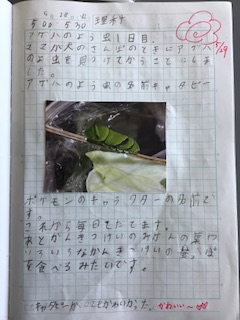 5、30
5:00～5:30 理科
5/29
アゲハのよう虫1日目。
ママが犬のさんぽのときにアゲハ
のよう虫を見つけてかうことにしま
した。
アゲハのよう虫の名前キャタピー
ポケモンのキャラクターの名前で
す。
これから毎日そだてます。
あとかんきつけいのみかんの葉や
いろいろなかんきつけいの葉
を食べるみたいです。
キャタピーが、ここでかわいかった。
かわいい～